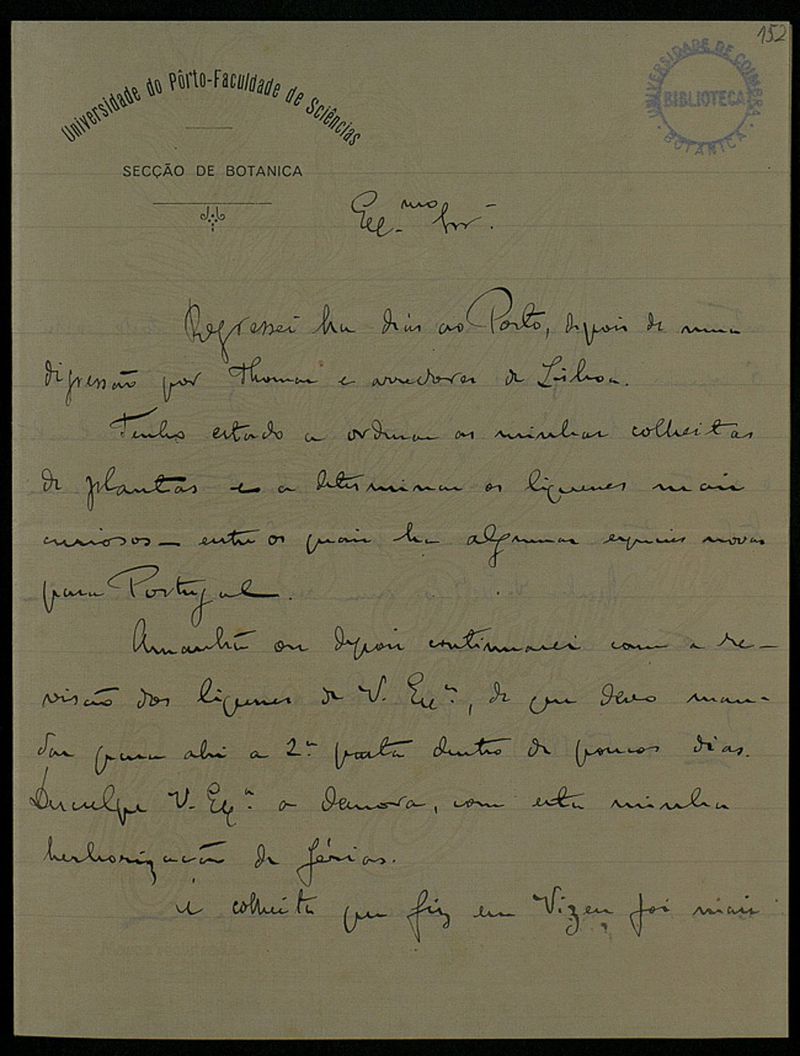 152
Universidade do Pôrto-Faculdade de Sciências
SECÇÃO DE BOTANICA
UNIVERSIDADE DE COIMBRA
BIBLIOTECA
BOTÂNICA
Ex.mo Snr.
Regressei ha dias ao Porto, depois de uma
digressão por Thomar e arredores de Lisboa.
Tenho estado a ordenar as minhas colheitas
de plantas e a determinar os liquenes mais
curiosos — entre os quais ha algumas especies novas
para Portugal.
Amanhã ou depois continuarei com a re-
visão dos liquenes de V. Ex.ª, de que devo man-
dar para ahi a 2.ª pasta dentro de poucos dias.
Desculpe V. Ex.ª a demora, com esta minha
herborização de férias.
A colheita que fiz em Vizeu foi mais